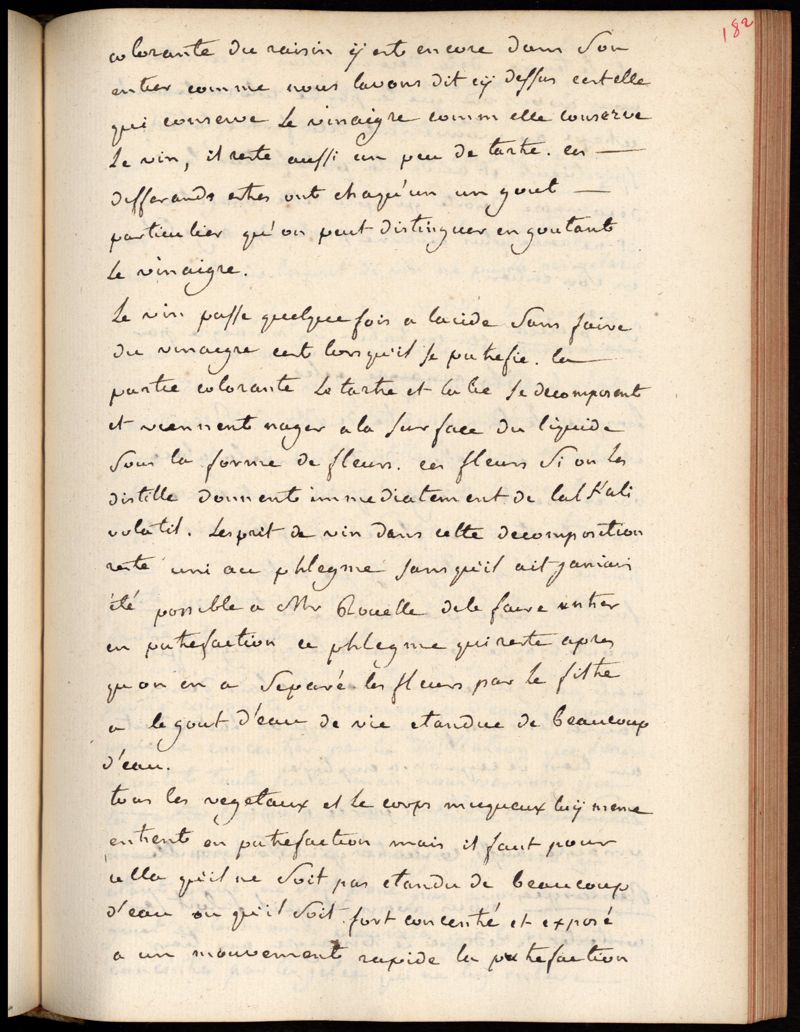 182
colorante du raisin ÿ est encore dans Son
entier comme nous lavons dit cÿ dessus cest elle
qui conserve Le vinaigre comm elle conserve
Le vin, il reste aussi un peu de tartre. ces —
differands ethes ont chaqu'un un gout —
particulier qu'on peut distinguer en goutant
Le vinaigre.
Le vin passe quelque fois a lacide Sans faire
du vinaigre cest lorsqu'il se putrefie. la —
partie colorante Le tartre et la lie Se decomposent
et viennent nager a la Surface du liquide
Sous la forme de fleurs. ces fleurs Si on les
distille donnent immediatement de lalkali
volatil. Lesprit de vin dans cette decomposition
reste uni au phlegme Sans qu'il ait jamais
été possible a Mr Rouelle de le faire entrer
en putrefaction ce phlegme qui reste apres
qu on en a Separé les fleurs par le filtre
a le gout d'eau de vie etandue de beaucoup
d'eau.
tous les vegetaux et Le corps muqueux luÿ meme
entrent en putrefaction mais il faut pour
cella qu'il ne Soit pas etandu de beaucoup
d'eau ou qu'il Soit fort concentré et exposé
a un mouvement rapide la putrefaction